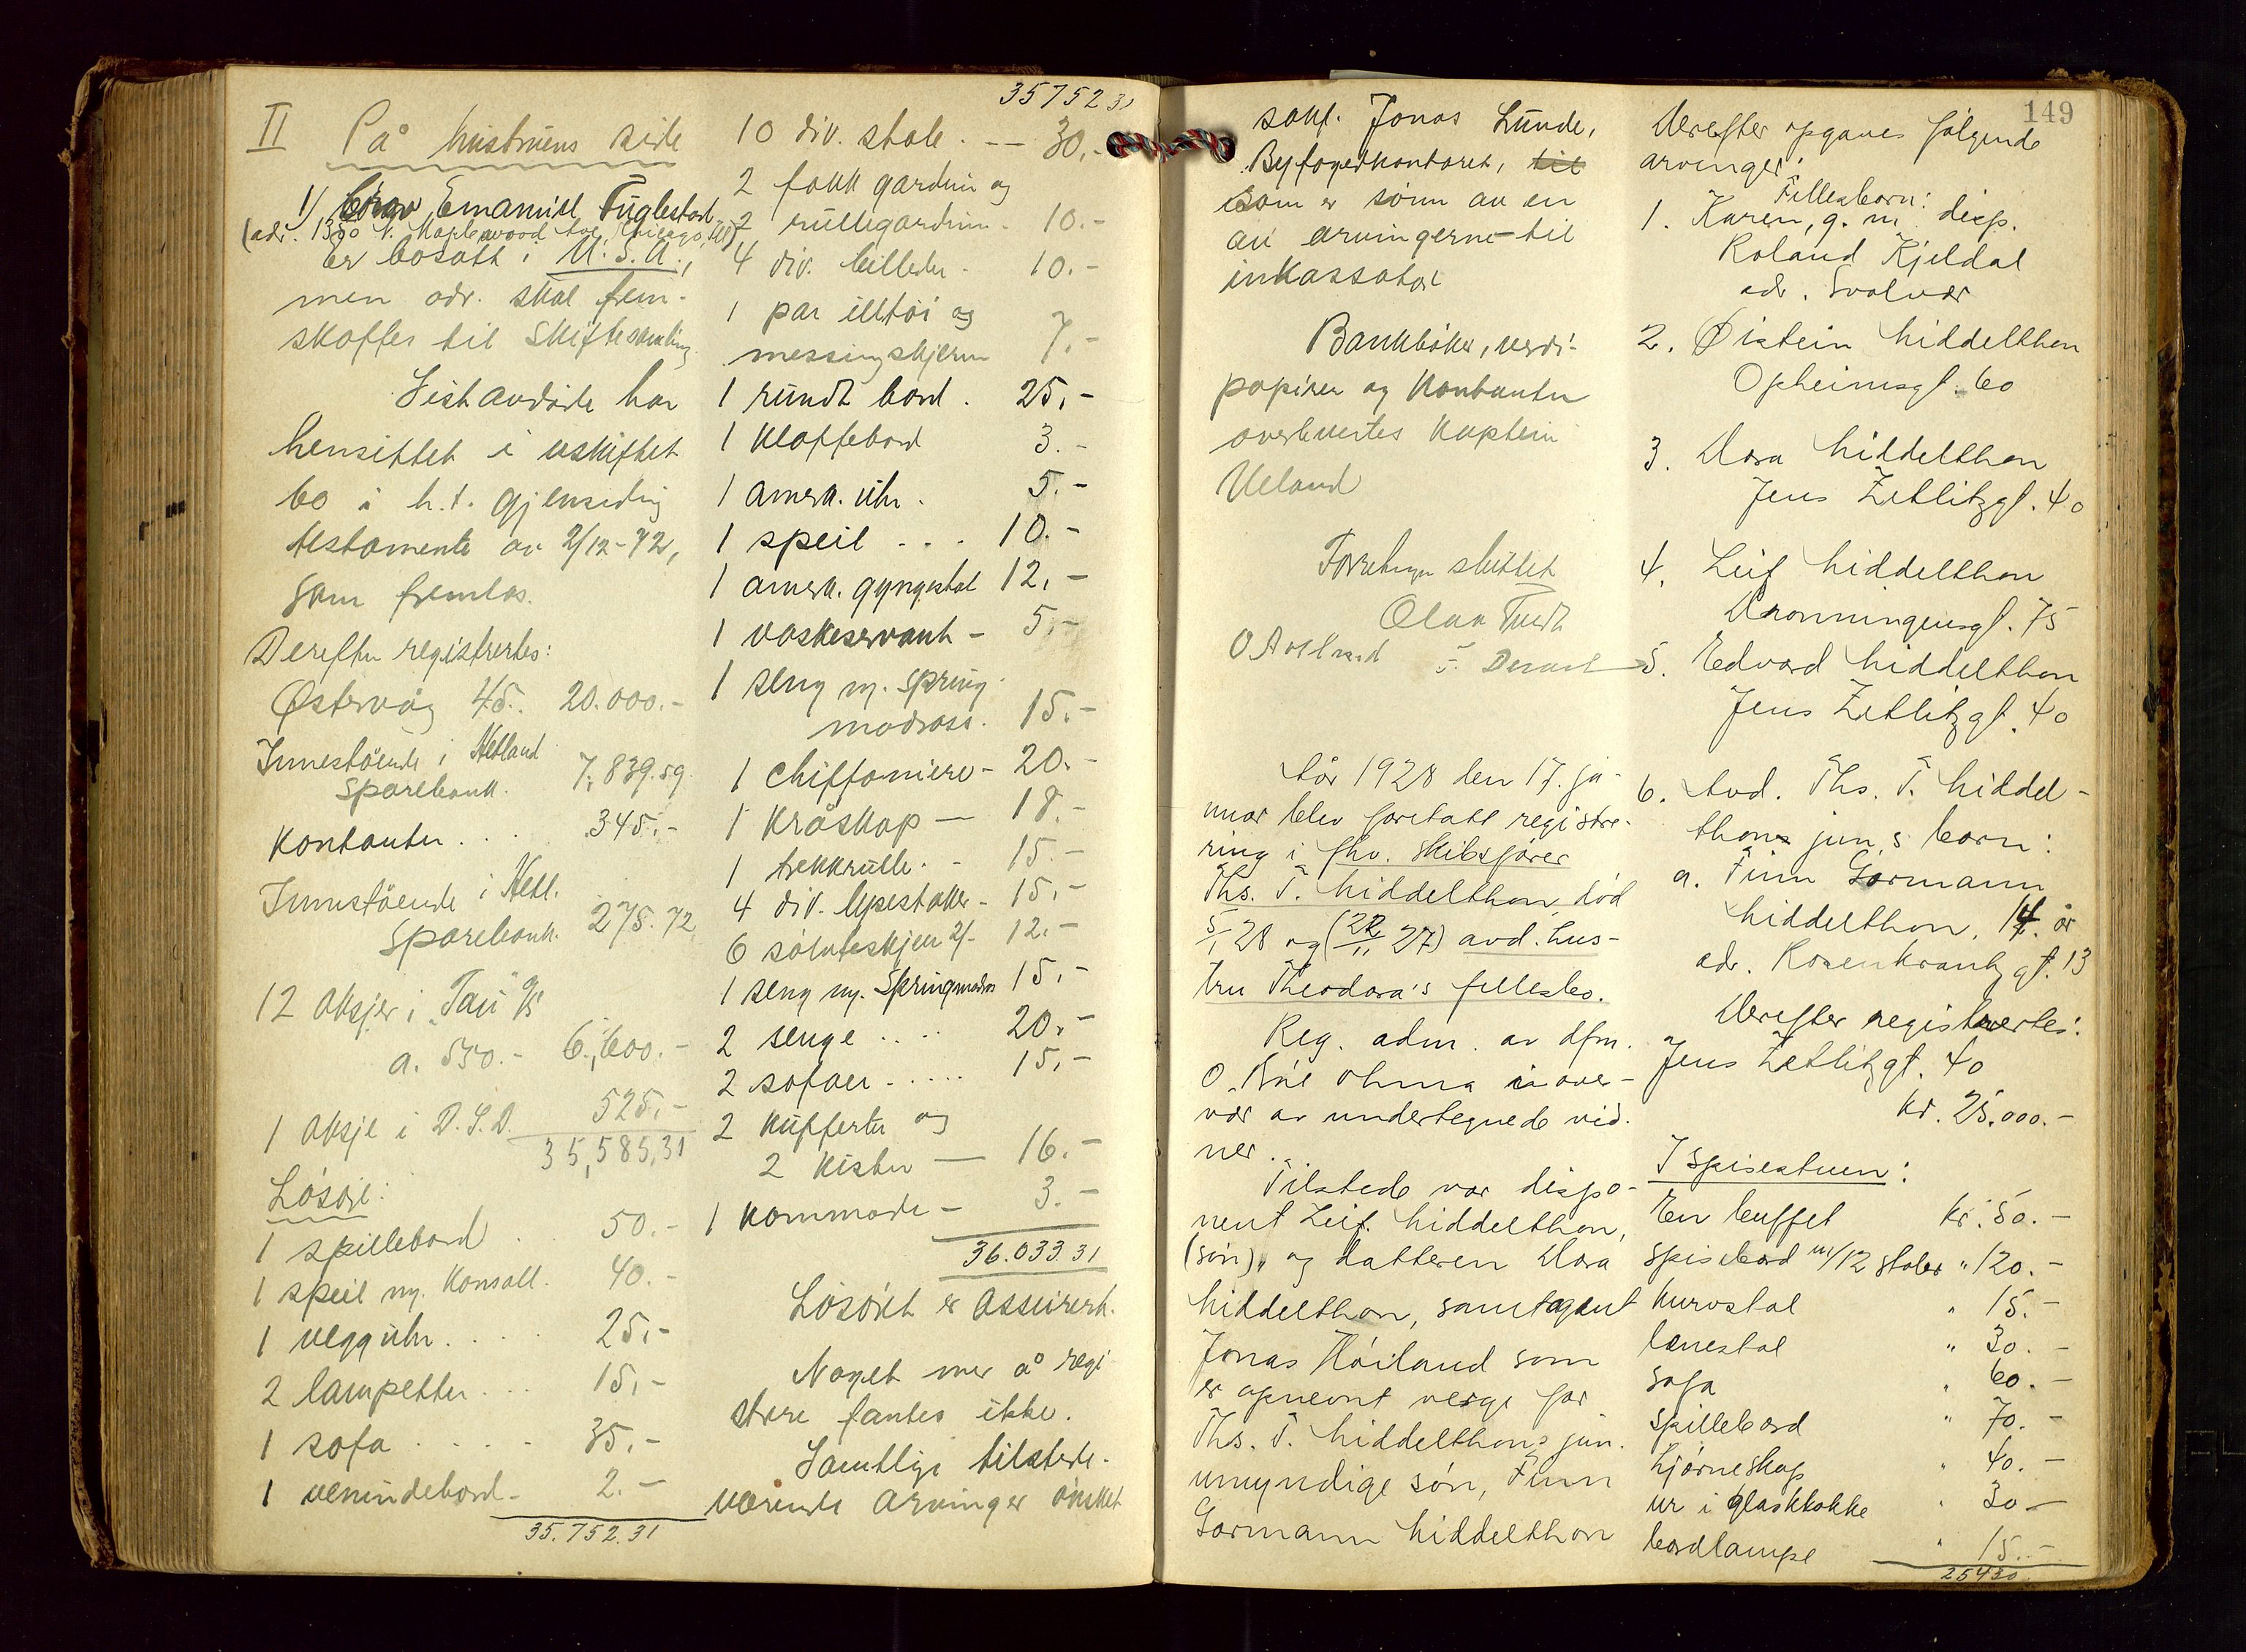 II På hustruens side
1) Emanuel Fuglestad
(adr. 1390 N. Maplewood Ave, Chicago, Ill)
er bosatt i U.S.A.,
men adr. skal frem-
skaffes til skiftesamling.
Sistavdøde har
hensittet i uskiftet
bo i h.t. gjensidig
testamente av 2/12-72,
som fremlas.
Derefter registrertes:
Østervåg 45. 20.000.-
Innestående i Hetland
Sparebank. 7.839.59
Kontanter . . 345.-
Innestående i Hetl.
Sparebank. 275.72
12 aksjer i "Tau" A/S
a. 550.- 6.600.-
1 aksje i D.S.D. 525.-
35,585,31
Løsøre:
1 spillebord . 50.-
1 speil m. konsoll. 40.-
1 vegguhr . . . . 25.-
2 lampetter . . . 15.-
1 sofa . . . . 35.-
1 venindebord - 2.-
35.752.31
35752 31
10 div. stole . -- 30.-
2 fakk gardin og
2 rullegardin . 10.-
4 div. billeder - 10.-
1 par illtøi og
messingskjerm 7.-
1 rundt bord . 25.-
1 klaffebord 3.-
1 amerk. uhr . 5.-
1 speil . . . 10.-
1 amerk. gyngestol 12.-
1 vaskeservant - 5.-
1 seng m. spring-
madrass. 15.-
1 chiffoniere - 20.-
1 kråskap - 18.-
1 trekkrulle . - 15.-
4 div. lysestaker - 15.-
6 sølvteskjeer 2/- 12.-
1 seng m. springmadras 15.-
2 senge . . . 20.-
2 sofaer . . . . . 15.-
2 kufferter og
2 kister - 16.-
1 kommode - 3.-
36.033.31
Løsøret er assurert.
Noget mer å regi
strere fantes ikke.
Samtlige tilstede-
værende arvinger ønsket
sakf. Jonas Lunde,
Byfogedkontoret, til
som er sønn av en
av arvingerne til
inkassator
Bankbøker, verdi-
papirer og kontanter
overlevertes kaptein
Ueland
Forretningen sluttet
Olav Tvedt
År 1928 den 17. ja-
nuar blev foretatt registre-
ring i fhv. skibsfører
Ths. T. Middelthon, død
5/1 28 og (22/11 27) avd. hus-
tru Theodora's fellesbo.
Reg. adm. av dfm.
O. Bøe Ohma i over-
vær av undertegnede vid-
ner.
Tilstede var dispo-
nent Leif Middelthon,
(søn), og datteren Dora
Middelthon, samt agent
Jonas Høiland som
er opnevnt verge for
Ths. T. Middelthons jun.
umyndige søn, Finn
Gormann Middelthon
149
Derefter opgaves følgende
arvinger:
Fellesbarn:
1. Karen, g. m. disp.
Roland Kjeldal
adr. Svolvær
2. Øistein Middelthon
Opheimsgt. 60
3. Dora Middelthon
Jens Zetlitzgt. 40
4. Leif Middelthon
Dronningensgt. 75
5. Edvard Middelthon
Jens Zetlitzgt. 40
6. Avd. Ths. T. Middel-
thon jun,s barn:
a. Finn Gormann
Middelthon, 14 år
adr. Rosenkrantzgt. 13
Derefter registrertes:
Jens Zetlitzgt. 40
kr. 25.000.-
I spisestuen:
En buffet kr. 50.-
spisebord m/12 stoler " 120.-
kurvstol " 15.-
lænestol " 30.-
sofa " 60.-
spillebord " 70.-
hjørneskap " 40.-
ur i glasklokke " 30.-
bordlampe " 15.-
25430